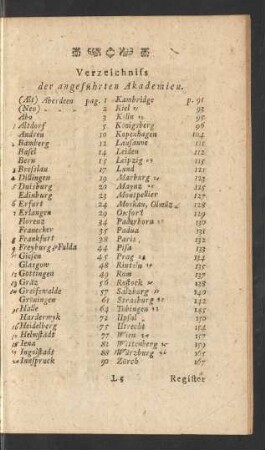 Verzeichniß
der angeführten Akademien.
(Alt) Aberdeen pag. 1 Kambridge p. 91
(Neu) 2 Kiel 93
Abo 3 Köln 95
Altdorf 5 Königsberg 96
Andren 10 Kopenhagen 104
Bamberg 12 Lausanne 111
Basel 14 Leiden 112
Bern 15 Leipzig 115
Breslau 17 Lund 121
Dillingen 19 Marburg 123
Duisburg 20 Maynz
Edinburg 23 Montpellier
Erfurt 24 Moskau, Olmüz 128
Erlangen 29 Oxfort 129
Florenz 34 Paderborn
Franecker 35 Padua 131
Frankfurt 38 Paris 132
Freyburg Fulda 43 Pisa
Giesen 45 Prag 134
Glasgow 48 Rinteln
Göttingen 49 Rom 137
Gräz 56 Rostock 128
Greifswalde 57 Salzburg
Gröningen 61 Strasburg
Halle 64 Tübingen 145
Harderwyk 72 Upsal 150
Heidelberg 75 Utrecht 154
Helmstädt 77 Wien
Iena 81 Wittenberg 159
Ingolstadt 88 Würzburg 165
Innspruck 90 Zürch 167
L 5 Register